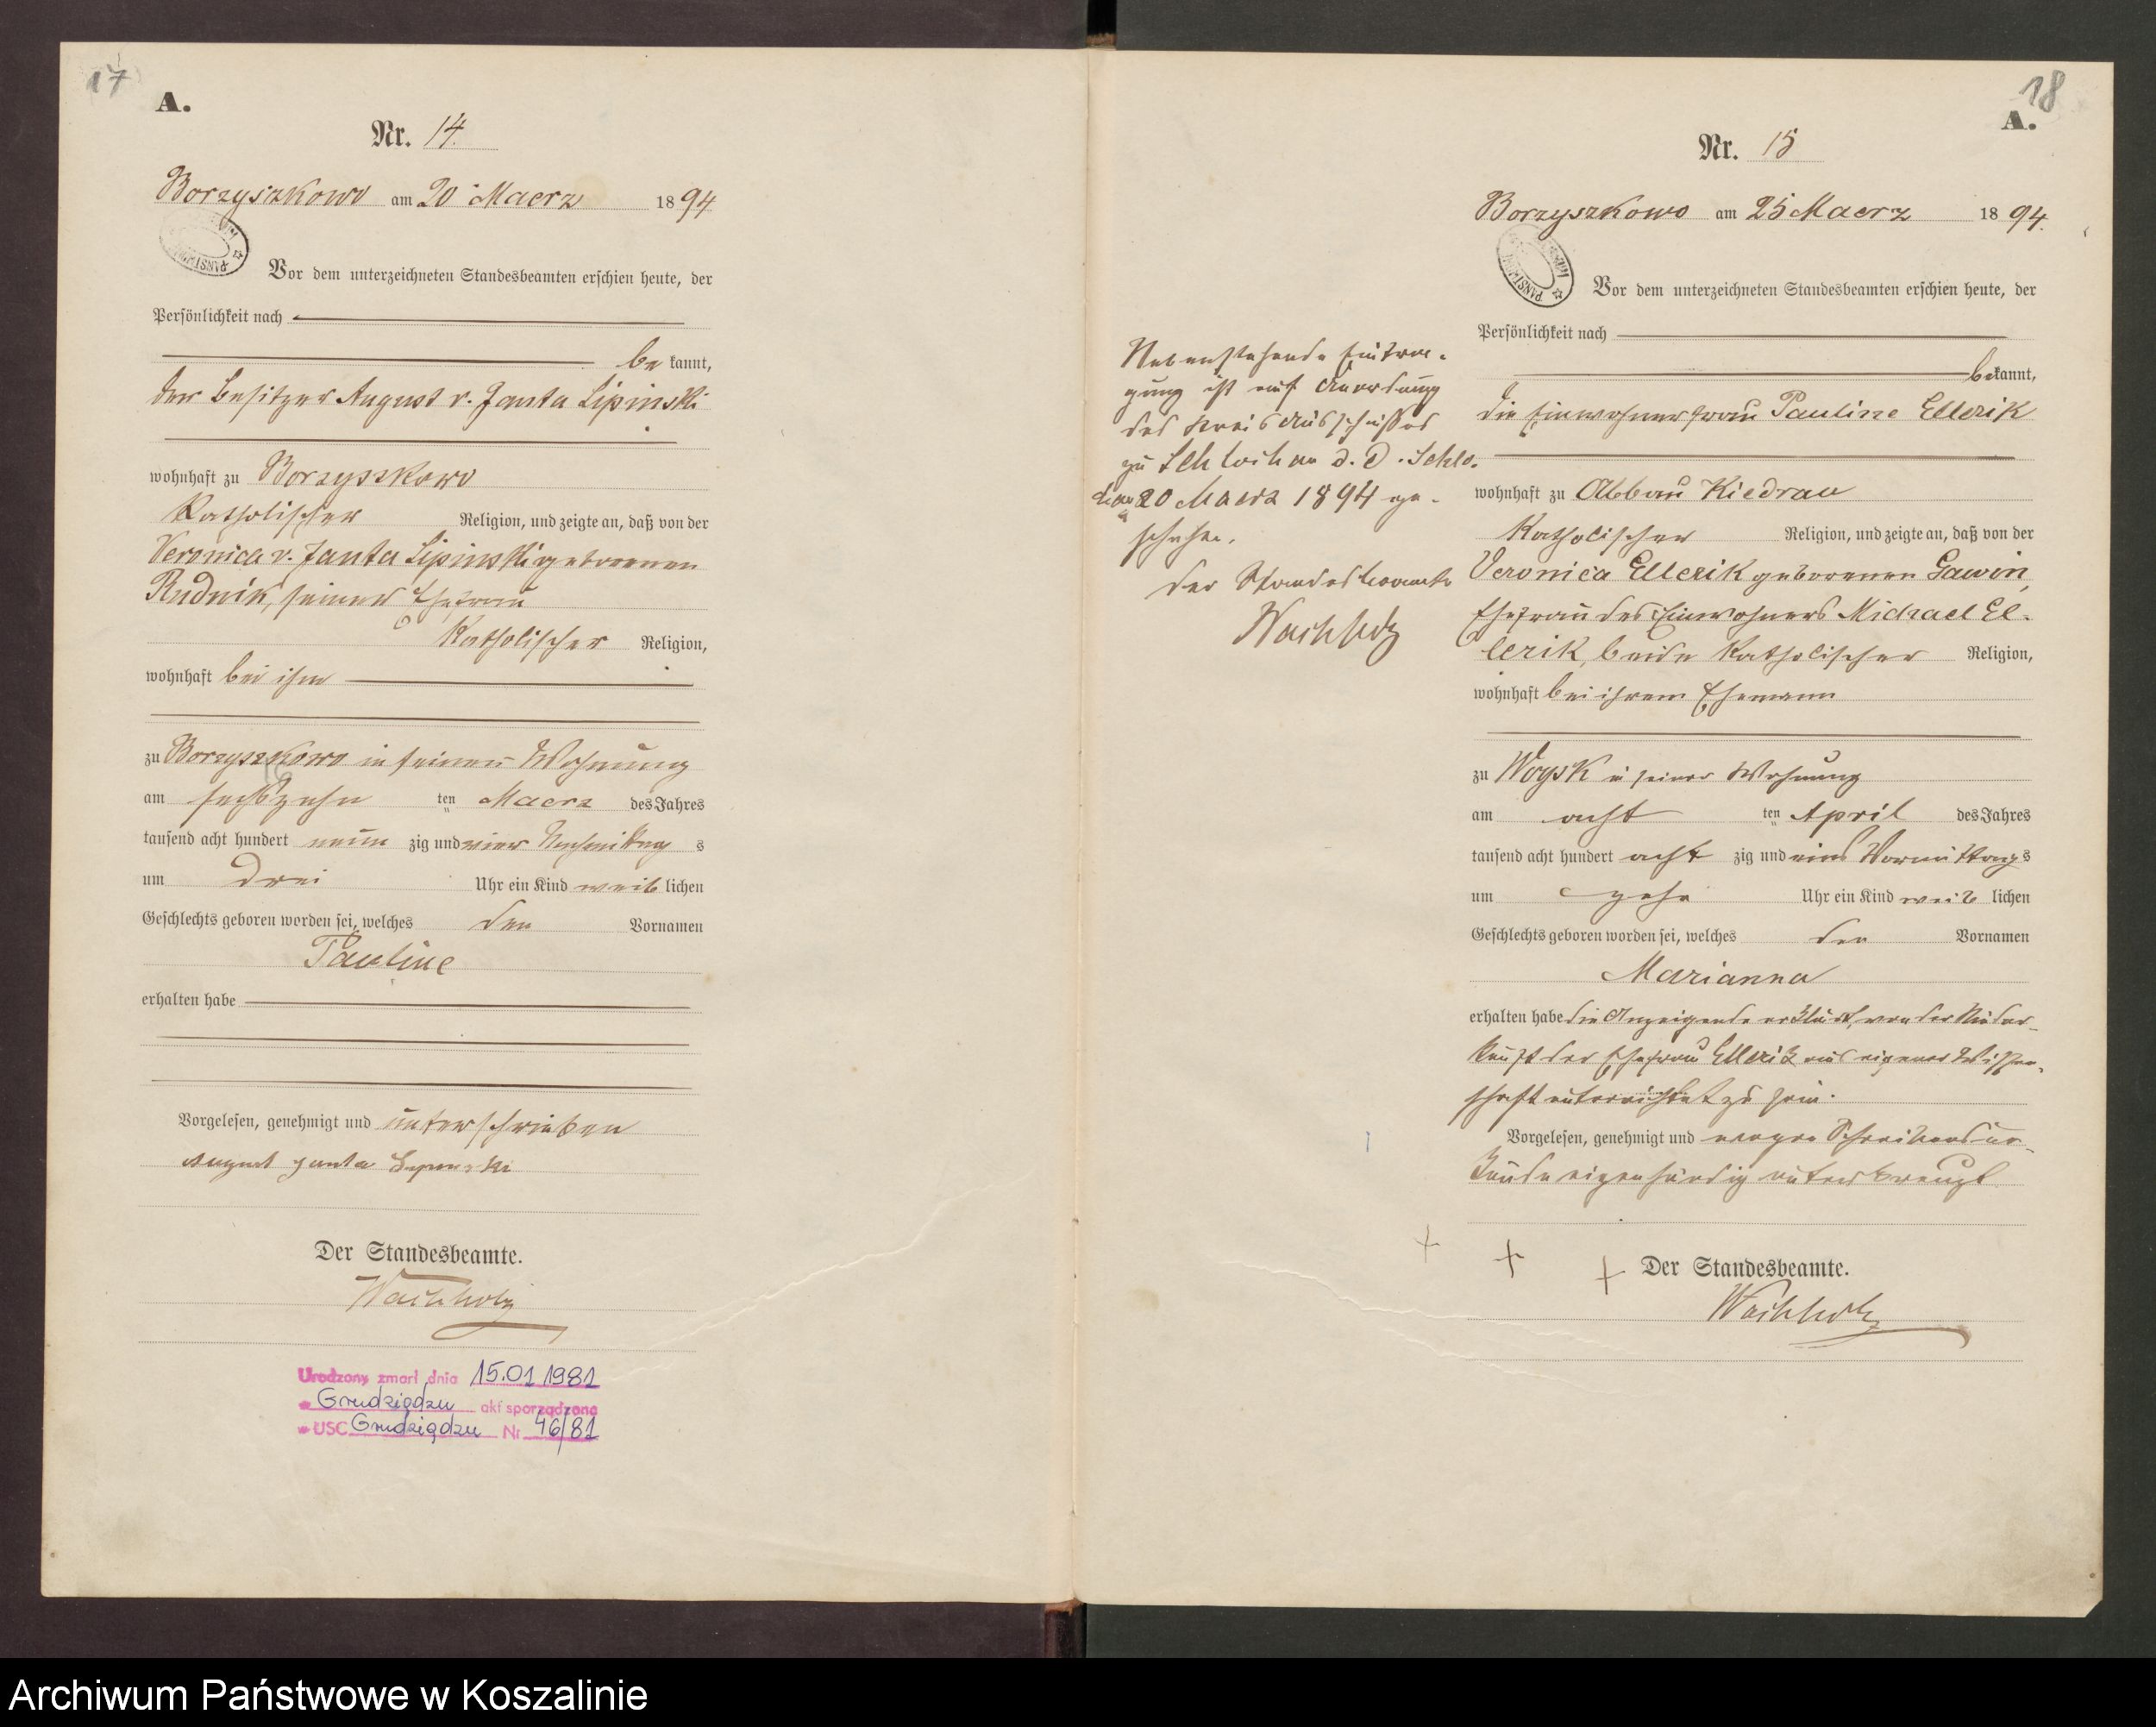 17
A.
Nr. 14.
Borzyszkowo am 20 Maerz 1894
PANSTWOWE
Vor dem unterzeichneten Standesbeamten erschien heute, der
Persönlichkeit nach
be kannt,
der Besitzer August v. Janta Lipinski
wohnhaft zu Borzyszkowo
Katholischer Religion, und zeigte an, daß von der
Veronica v. Janta Lipinski geborenen
Rudnik, seiner Ehefrau
Katholischer Religion,
wohnhaft bei ihm
zu Borzyszkowo in seiner Wohnung
am sechszehn ten Maerz des Jahres
tausend acht hundert neun zig und vier Nachmittag s
um drei Uhr ein Kind weib lichen
Geschlechts geboren worden sei, welches den Vornamen
Pauline
erhalten habe
Vorgelesen, genehmigt und unterschrieben
August Janta Lipinski
Der Standesbeamte.
Wachholz
Urodzony zmarł dnia 15.01.1981
w Grudziądzu akt sporządzono
w USC Grudziądzu Nr 46/81
18
A.
Nr. 15
Borzyszkowo am 25 Maerz 1894.
PANSTWOWE
Vor dem unterzeichneten Standesbeamten erschien heute, der
Persönlichkeit nach
bekannt,
die Einwohnerfrau Pauline Ellerik
wohnhaft zu Abbau Kiedrau
Katholischer Religion, und zeigte an, daß von der
Veronica Ellerik geborenen Gawin,
Ehefrau des Einwohners Michael El-
lerik, beide Katholischer Religion,
wohnhaft bei ihrem Ehemann
zu Woysk in seiner Wohnung
am acht ten April des Jahres
tausend acht hundert acht zig und eins Vormittags
um zehn Uhr ein Kind weib lichen
Geschlechts geboren worden sei, welches den Vornamen
Marianna
erhalten habe die Anzeigende erklärt, von der Nieder-
kunft der Ehefrau Ellerik aus eigener Wissen-
schaft unterrichtet zu sein.
Vorgelesen, genehmigt und wegen Schreibensun-
kunde eigenhändig unterkreuzt
+ + +
Der Standesbeamte.
Wachholz
Nebenstehende Eintra-
gung ist auf Anordnung
des Kreis Ausschusses
zu Schlochau d. d. Schlo-
chau 20 Maerz 1894 ge-
schehen.
Der Standesbeamte
Wachholz
Archiwum Państwowe w Koszalinie